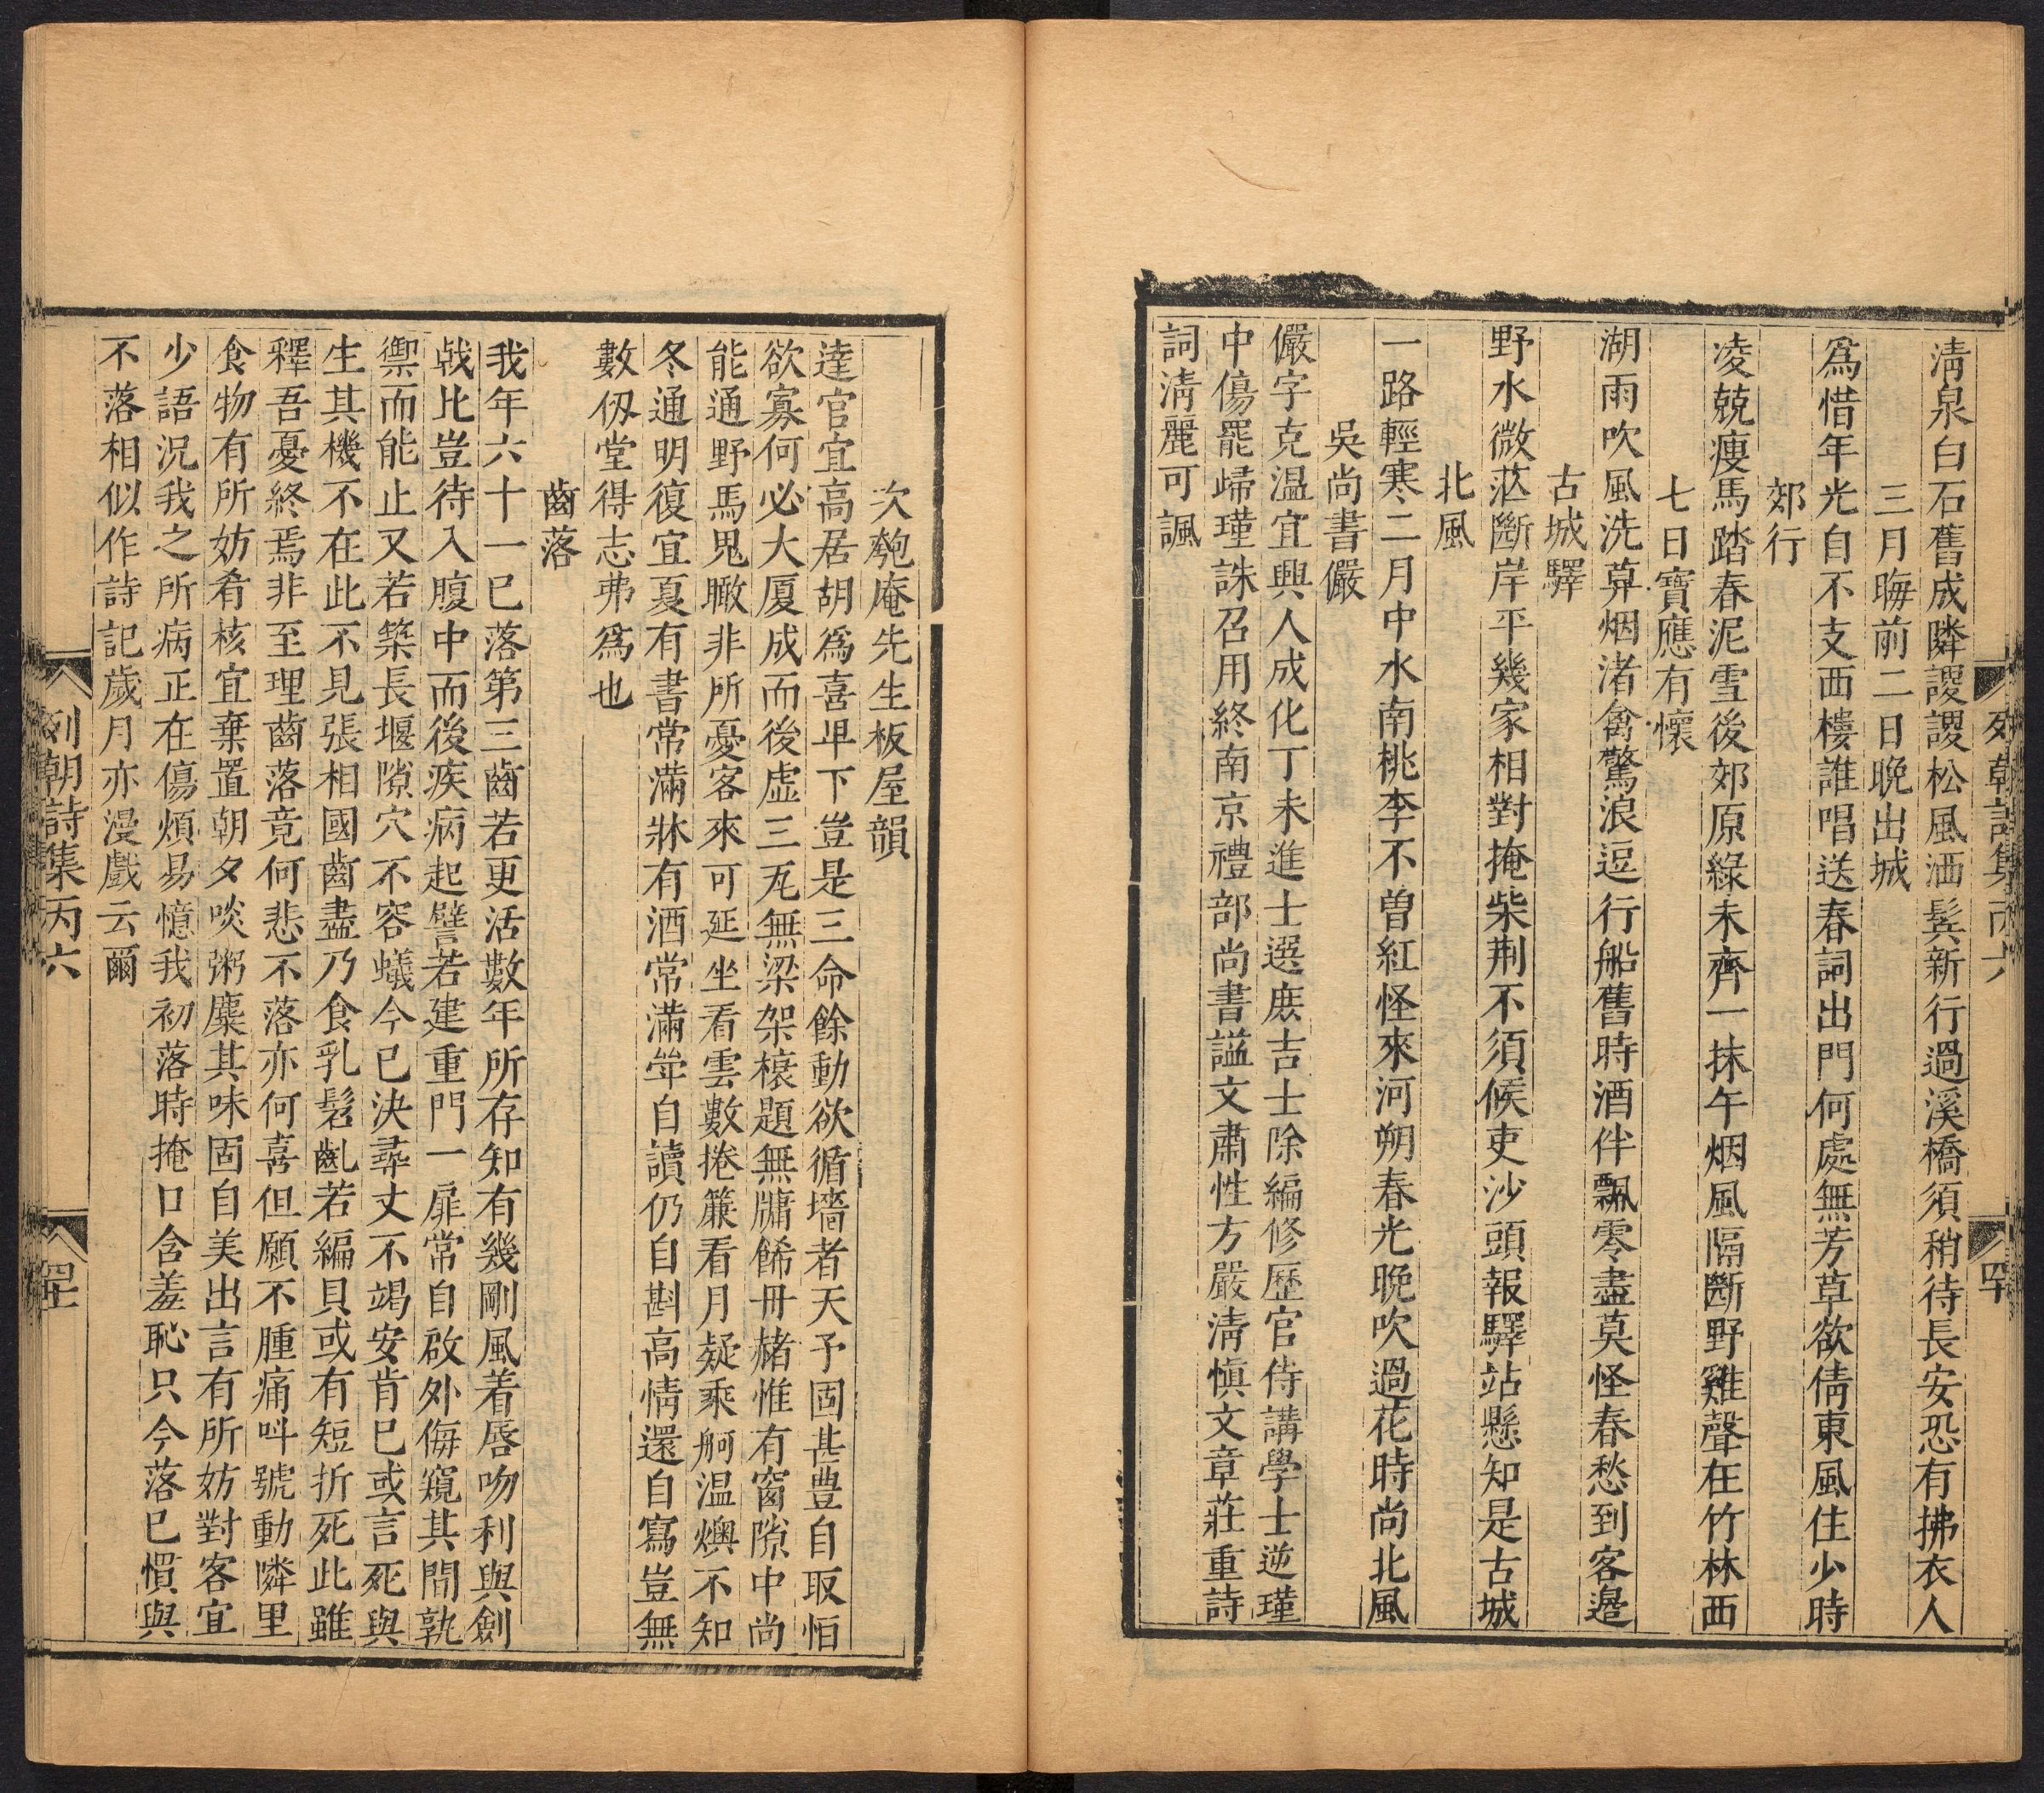 列朝詩集丙六
四十
清泉白石舊成隣謖謖松風洒鬓新行過溪橋須稍待長安恐有拂衣人
三月晦前二日晚出城
爲惜年光自不支西樓誰唱送春詞出門何處無芳草欲倩東風住少時
郊行
凌兢瘦馬踏春泥雪後郊原綠未齊一抹午烟風隔斷野雞聲在竹林西
七日寶應有懷
湖雨吹風洗草烟渚禽驚浪逗行船舊時酒伴飄零盡莫怪春愁到客邊
古城驛
野水微茫斷岸平幾家相對掩柴荆不須候吏沙頭報驛站懸知是古城
北風
一路輕寒二月中水南桃李不曾紅怪來河朔春光晚吹過花時尚北風
吳尚書儼
儼字克溫宜興人成化丁未進士選庶吉士除編修歷官侍講學士逆瑾
中傷罷歸瑾誅召用終南京禮部尚書謚文肅性方嚴清愼文章莊重詩
詞淸麗可諷
次匏庵先生板屋韻
達官宜高居胡爲喜卑下豈是三命餘動欲循墻者天予固甚豊自取恒
欲寡何必大厦成而後虛三瓦無梁架榱題無牗餙丹赭惟有窗隙中尚
能通野馬鬼瞰非所憂客來可延坐看雲數捲簾看月疑乘舸温燠不知
冬通明復宜夏有書常滿牀有酒常滿斝自讀仍自斟高情還自寫豈無
數仭堂得志弗爲也
齒落
我年六十一巳落第三齒若更活數年所存知有幾剛風着唇吻利與劍
戟比豈待入腹中而後疾病起譬若建重門一扉常自啟外侮窺其間孰
禦而能止又若築長堰隙穴不容蟻今已決尋丈不竭安肯巳或言死與
生其機不在此不見張相國齒盡乃食乳髫齓若編貝或有短折死此雖
釋吾憂終焉非至理齒落竟何悲不落亦何喜但願不腫痛呌號動隣里
食物有所妨肴核宜棄置朝夕啖粥麋其味固自美出言有所妨對客宜
少語況我之所病正在傷煩易憶我初落時掩口含羞恥只今落巳慣與
不落相似作詩記歲月亦漫戲云爾
列朝詩集丙六
四十一